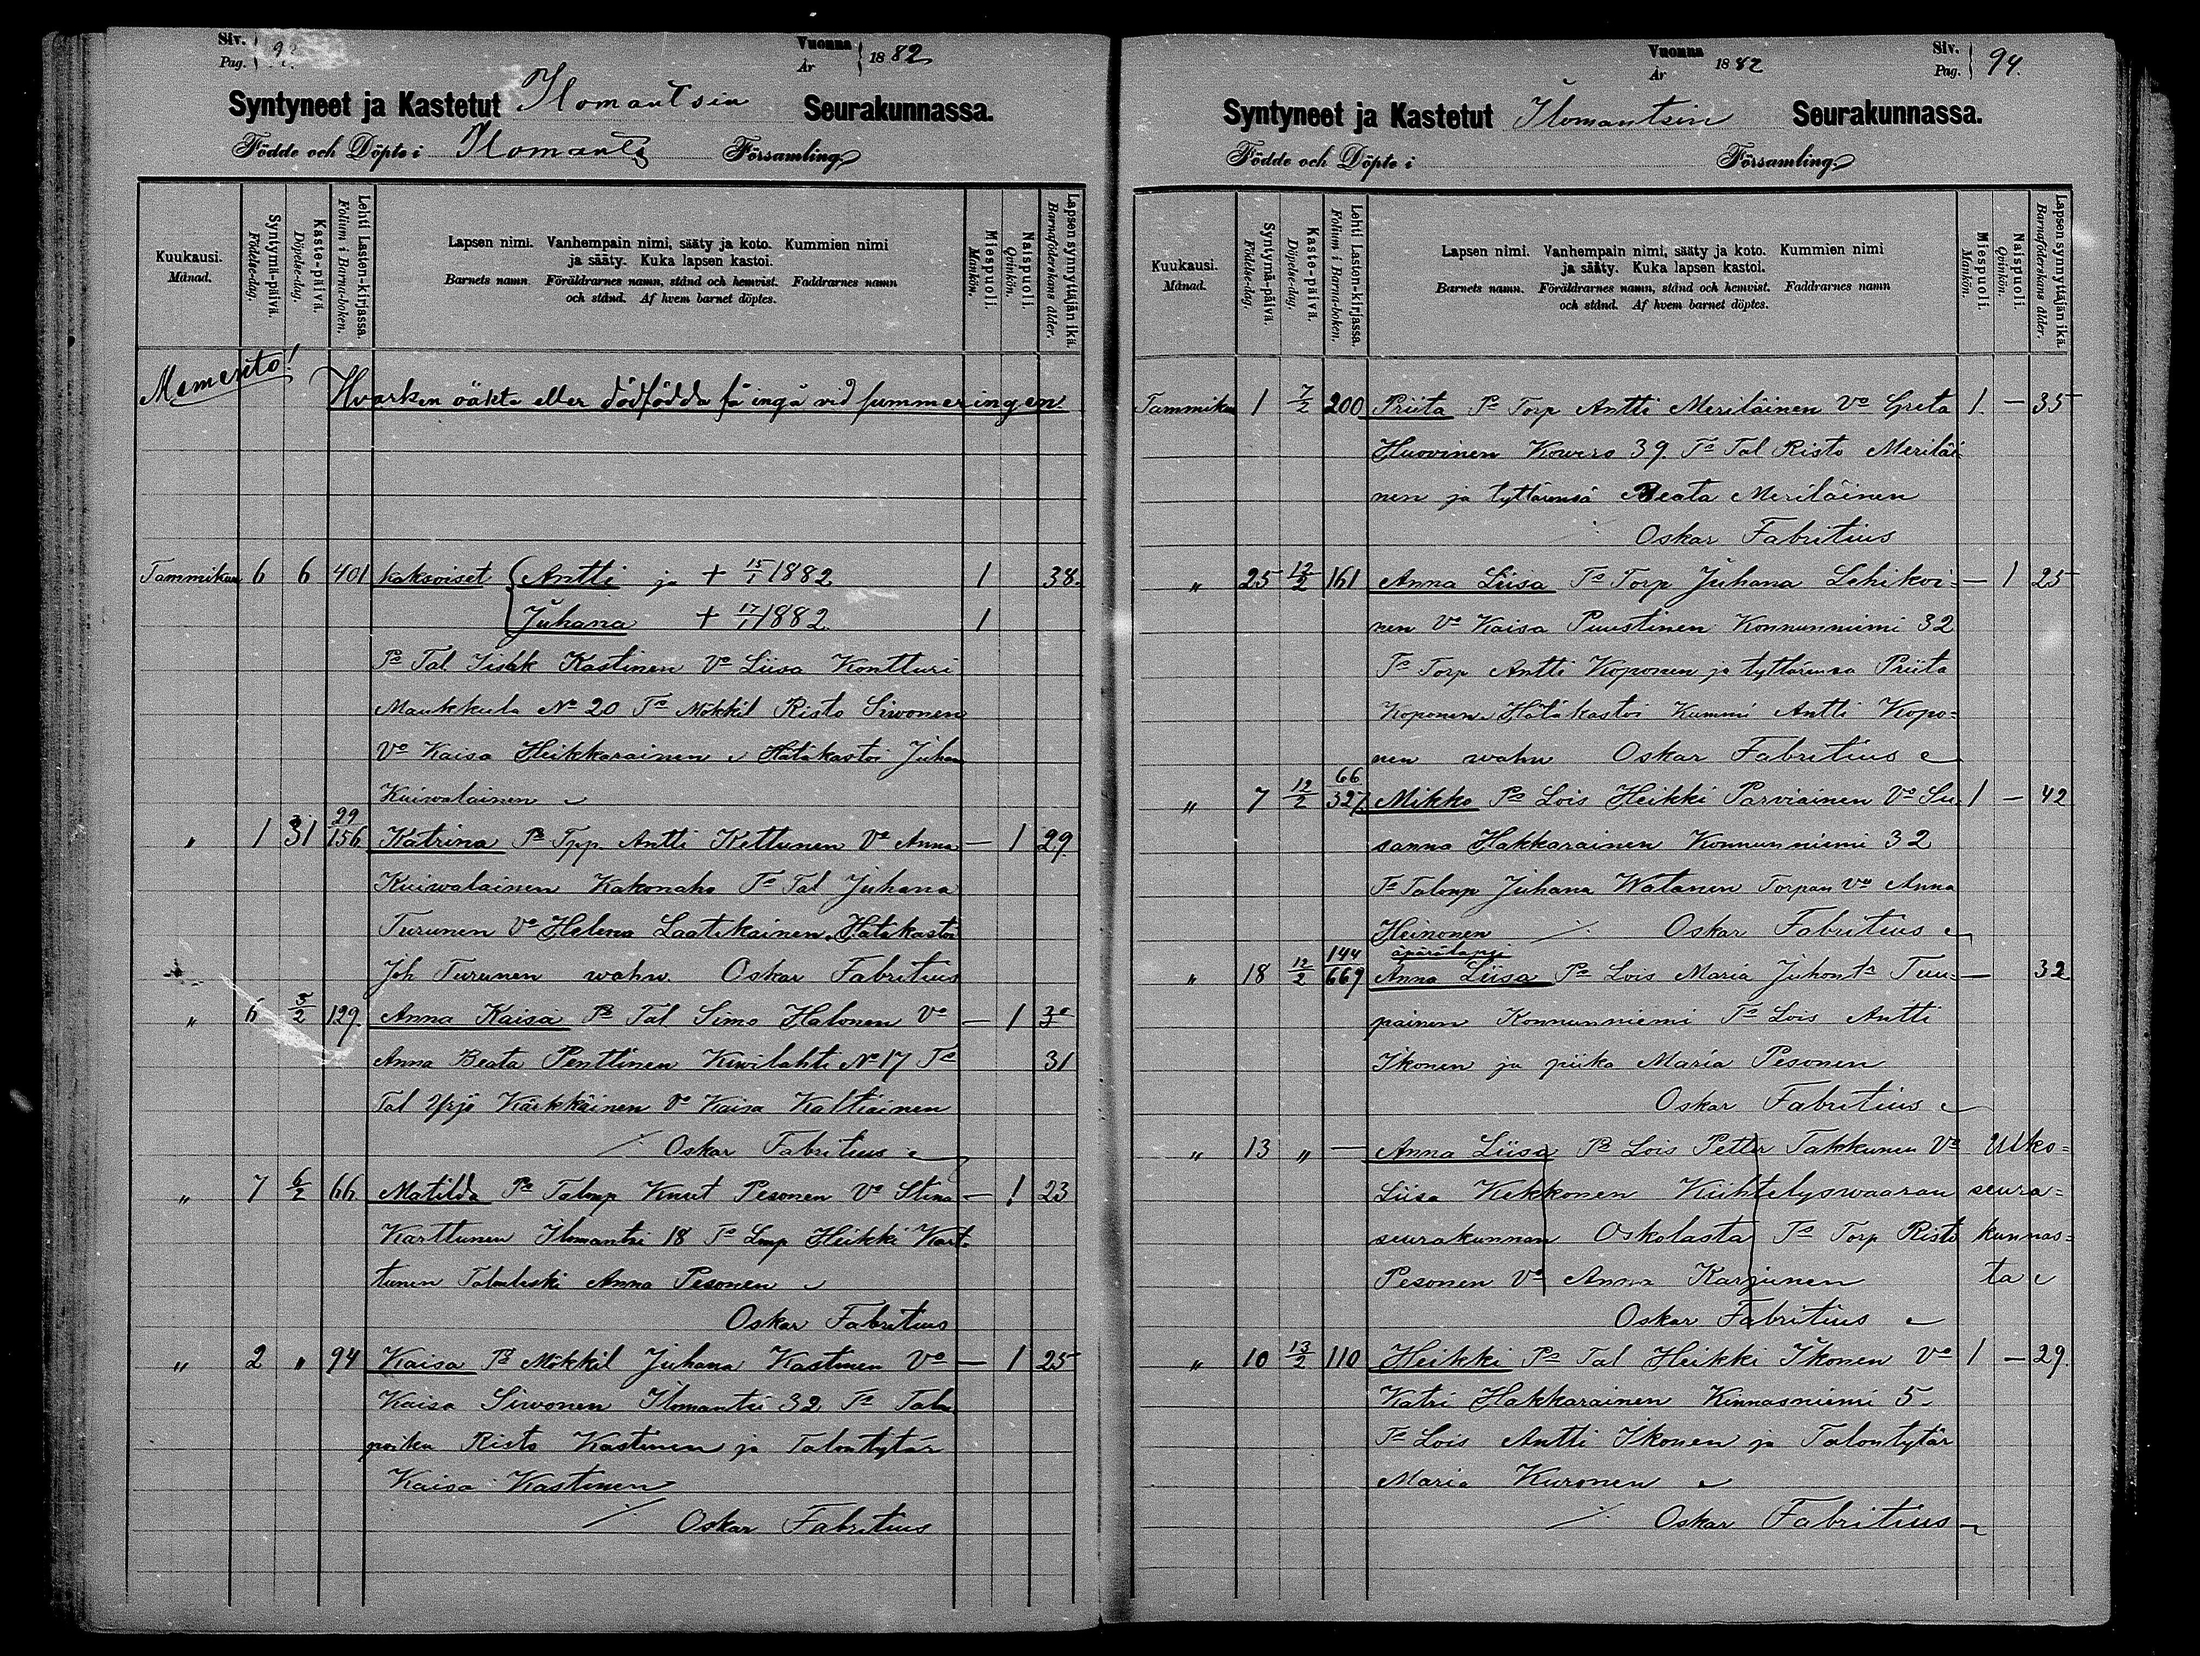 Siv.
Pag.
Vuonna
År
1882
Syntyneet ja Kastetut Ilomantsin Seurakunnassa.
Födde och Döpte i Ilomants Församling
Kuukausi.
Månad.
Syntymä-päivä.
Födelse-dag.
Kaste-päivä.
Döpelse-dag.
Lehti Lasten-kirjassa.
Folium i Barna-boken.
Lapsen nimi. Vanhempain nimi, sääty ja koto. Kummien nimi
ja sääty. Kuka lapsen kastoi.
Barnets namn. Föräldrarnes namn, stånd och hemvist. Faddrarnes namn
och stånd. Af hvem barnet döptes.
Miespuoli.
Mankön.
Naispuoli.
Qvinkön.
Lapsen synnyttäjän ikä.
Barnaföderskans ålder.
Memento!
Hvarken oäkta eller dödfödda få ingå vid summeringen.
Tammikuu 6 6 401 kaksoiset Antti ja + 15/1 1882 1 38.
Juhana + 17/1 1882 1
Ps Tal Iisak Kastinen Vo Liisa Kontturi
Maukkula No 20 Ts Mökkil Risto Sivonen
Vo Kaisa Heikkarainen Hätäkastoi Juhan
Kuiwalainen
" 1 31 29/156 Katrina Ps Tpp. Antti Kettunen Vo Anna — 1 29.
Kuiwalainen Kakonaho Ts Tal Juhana
Turunen Vo Helena Laatikainen. Hätäkastoi
Joh Turunen wahw. Oskar Fabritius
" 6 5/2 129. Anna Kaisa Ps Tal Simo Halonen Vo — 1 30
Anna Beata Penttinen Kiwilahti No 17 Ts 31
Tal Yrjö Kärkkäinen Vo Kaisa Kaltiainen
Oskar Fabritius
" 7 6/2 66 Matilda Ps Talonp Knut Pesonen Vo Stina — 1 23
Karttunen Ilomantsi 18 Ts Lmp Heikki Kart-
tunen Talonleski Anna Pesonen
Oskar Fabritius
" 2 " 94 Kaisa Ps Mökkil Juhana Kastinen Vo — 1 25
Kaisa Sivonen Ilomantsi 32 Ts Talon
poika Risto Kastinen ja Talontytär
Kaisa Kastinen
Oskar Fabritius
Vuonna
År
1882
Siv.
Pag.
94.
Syntyneet ja Kastetut Ilomantsin Seurakunnassa.
Födde och Döpte i Församling
Kuukausi.
Månad.
Syntymä-päivä.
Födelse-dag.
Kaste-päivä.
Döpelse-dag.
Lehti Lasten-kirjassa.
Folium i Barna-boken.
Lapsen nimi. Vanhempain nimi, sääty ja koto. Kummien nimi
ja sääty. Kuka lapsen kastoi.
Barnets namn. Föräldrarnes namn, stånd och hemvist. Faddrarnes namn
och stånd. Af hvem barnet döptes.
Miespuoli.
Mankön.
Naispuoli.
Qvinkön.
Lapsen synnyttäjän ikä.
Barnaföderskans ålder.
Tammikuu 1 7/2 200 Priita Ps Torp Antti Meriläinen Vo Greta 1. — 35
Huovinen Kowero 39. Ts Tal Risto Meriläi
nen ja tyttärensä Beata Meriläinen
Oskar Fabritius
" 25 12/2 161 Anna Liisa Ts Torp Juhana Lehikoi= — 1 25
nen Vo Kaisa Puustinen Konnunniemi 32
Ts Torp Antti Koponen ja tyttärensa Priita
Koponen Hätäkastoi Kummi Antti Kopo=
nen wahw Oskar Fabritius
" 7 12/2 66/327 Mikko Ps Lois Heikki Parviainen Vo Su 1 — 42
sanna Hakkarainen Konnunniemi 32
Ts Talonp Juhana Watanen Torpan vo Anna
Heinonen Oskar Fabritius
äpärälapsi
" 18 12/2 144/669 Anna Liisa Ps Lois Maria Juhont:r Tuu= — 32
painen Konnunniemi Ts Lois Antti
Ikonen ja piika Maria Pesonen
Oskar Fabritius
" 13 " — Anna Liisa Ps Lois Petter Takkunen Vo Ulko=
Liisa Kekkonen Kiihtelyswaaran seura=
seurakunnan Oskolasta Ts Torp Risto kunnas=
Pesonen Vo Anna Karjunen ta
Oskar Fabritius
" 10 13/2 110 Heikki Ps Tal Heikki Ikonen Vo 1 — 29.
Katri Hakkarainen Kinnasniemi 5.
Ts Lois Antti Ikonen ja Talontytär
Maria Kuronen
Oskar Fabritius